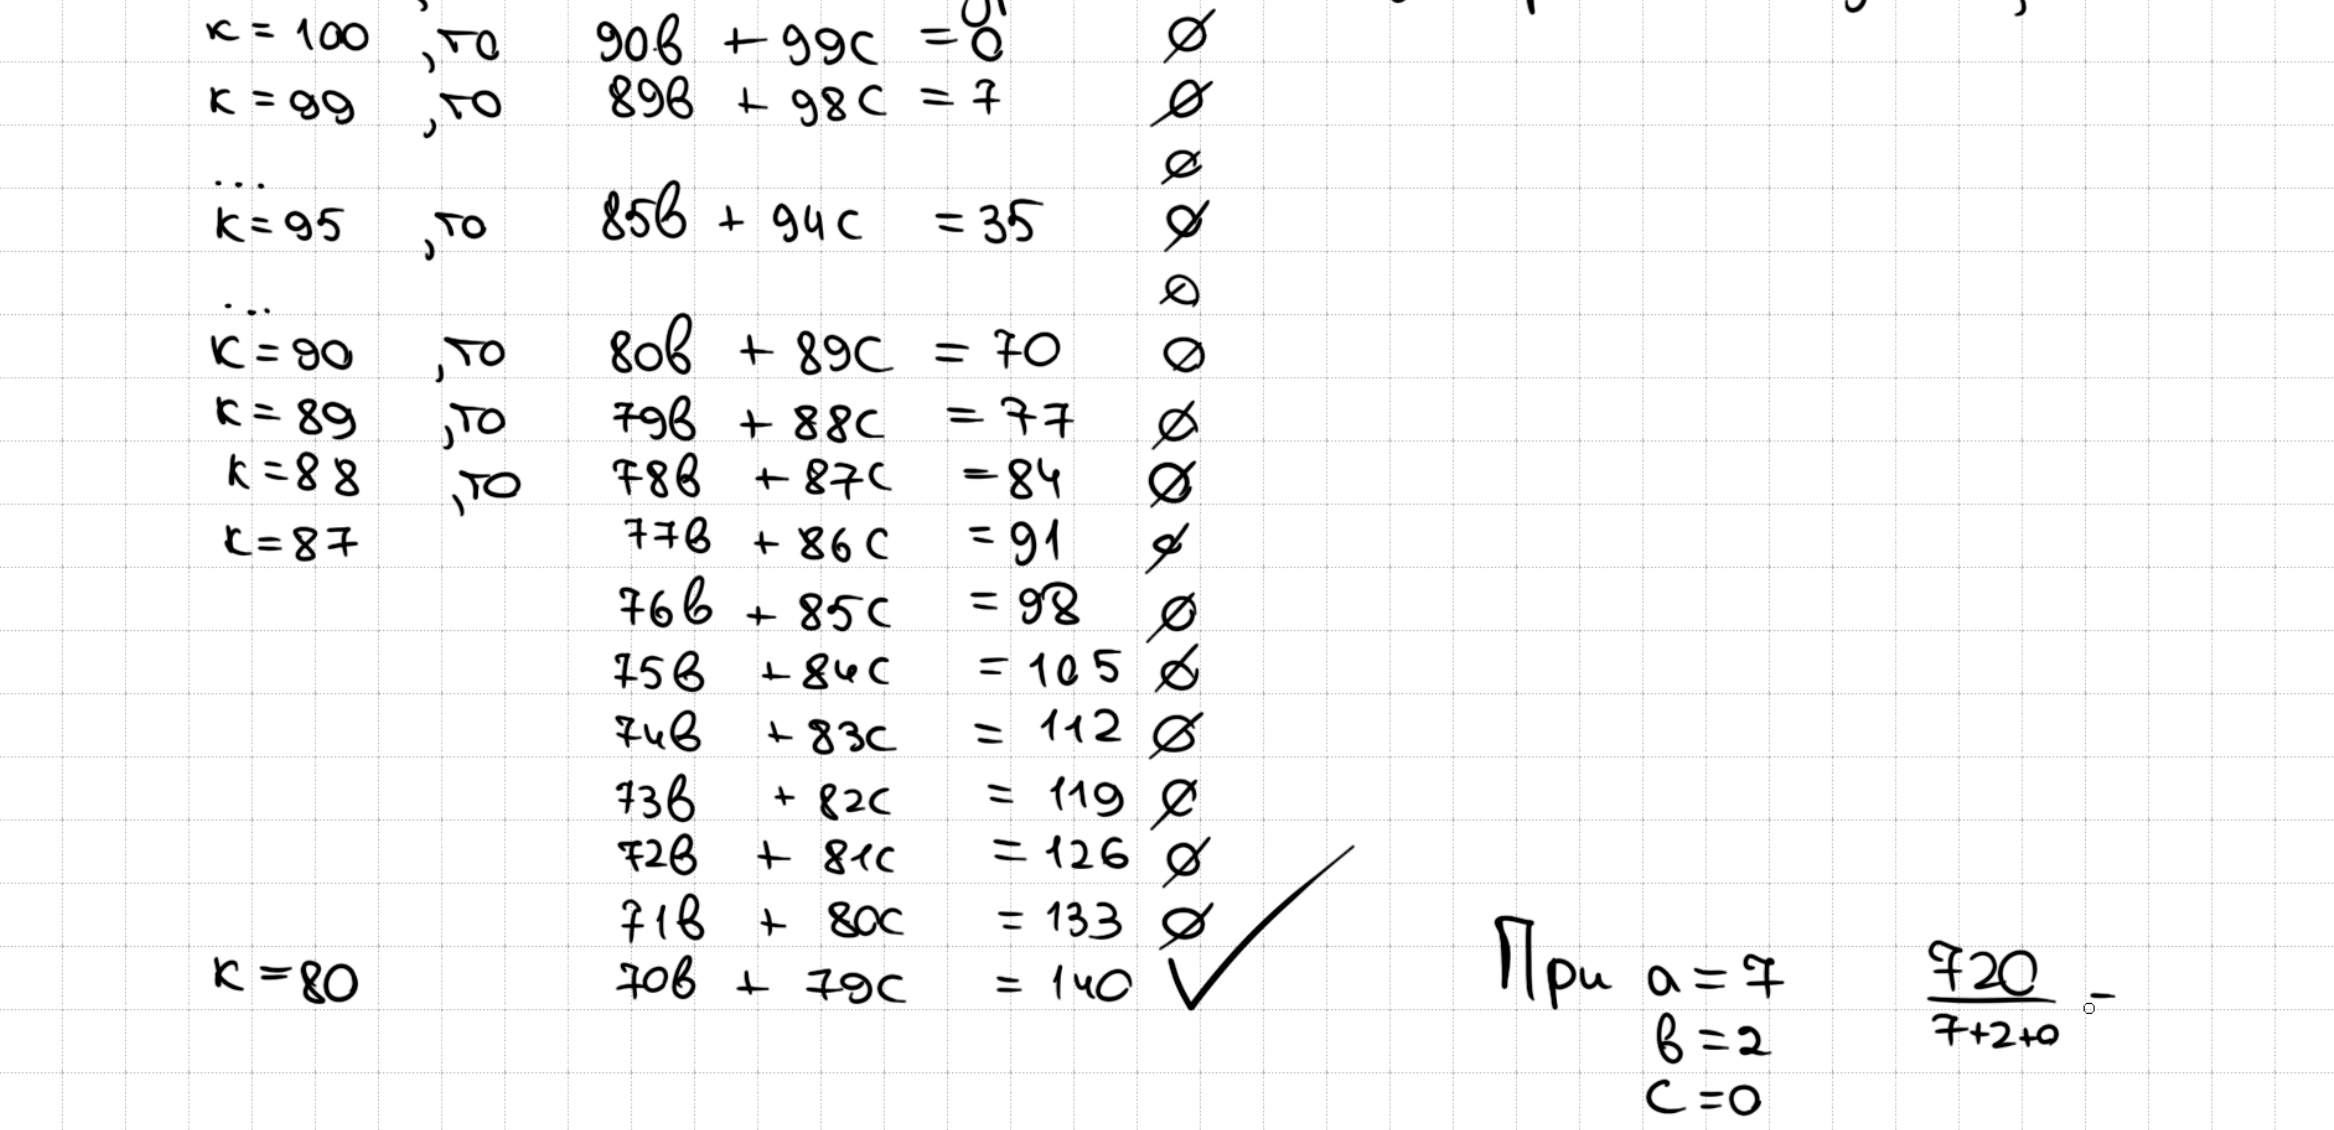 к = 100 , то 90в + 99с = 0 ∅
к = 99 , то 89в + 98с = 7 ∅
... ∅
к = 95 , то 85в + 94с = 35 ∅
... ∅
к = 90 , то 80в + 89с = 70 ∅
к = 89 , то 79в + 88с = 77 ∅
к = 88 , то 78в + 87с = 84 ∅
к = 87 77в + 86с = 91 ∅
76в + 85с = 98 ∅
75в + 84с = 105 ∅
74в + 83с = 112 ∅
73в + 82с = 119 ∅
72в + 81с = 126 ∅
71в + 80с = 133 ∅
к = 80 70в + 79с = 140 ✓
При а = 7 720/(7+2+0) =
в = 2
с = 0